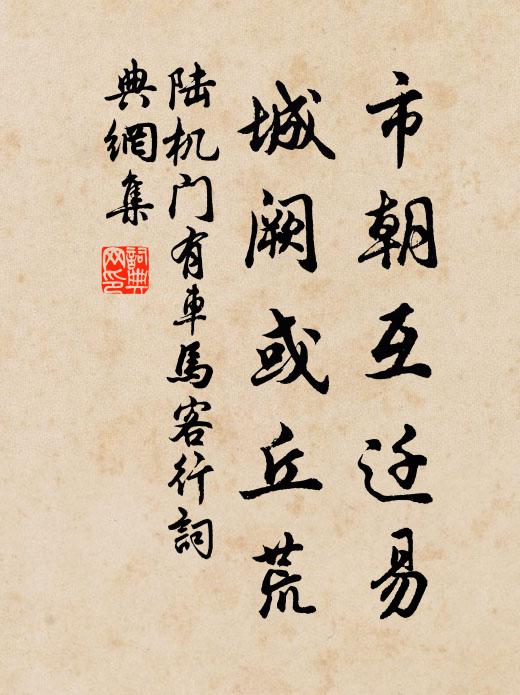 市朝互迁易
城阙或丘荒
陆机门有车馬客行詞
典網集
詞典网印